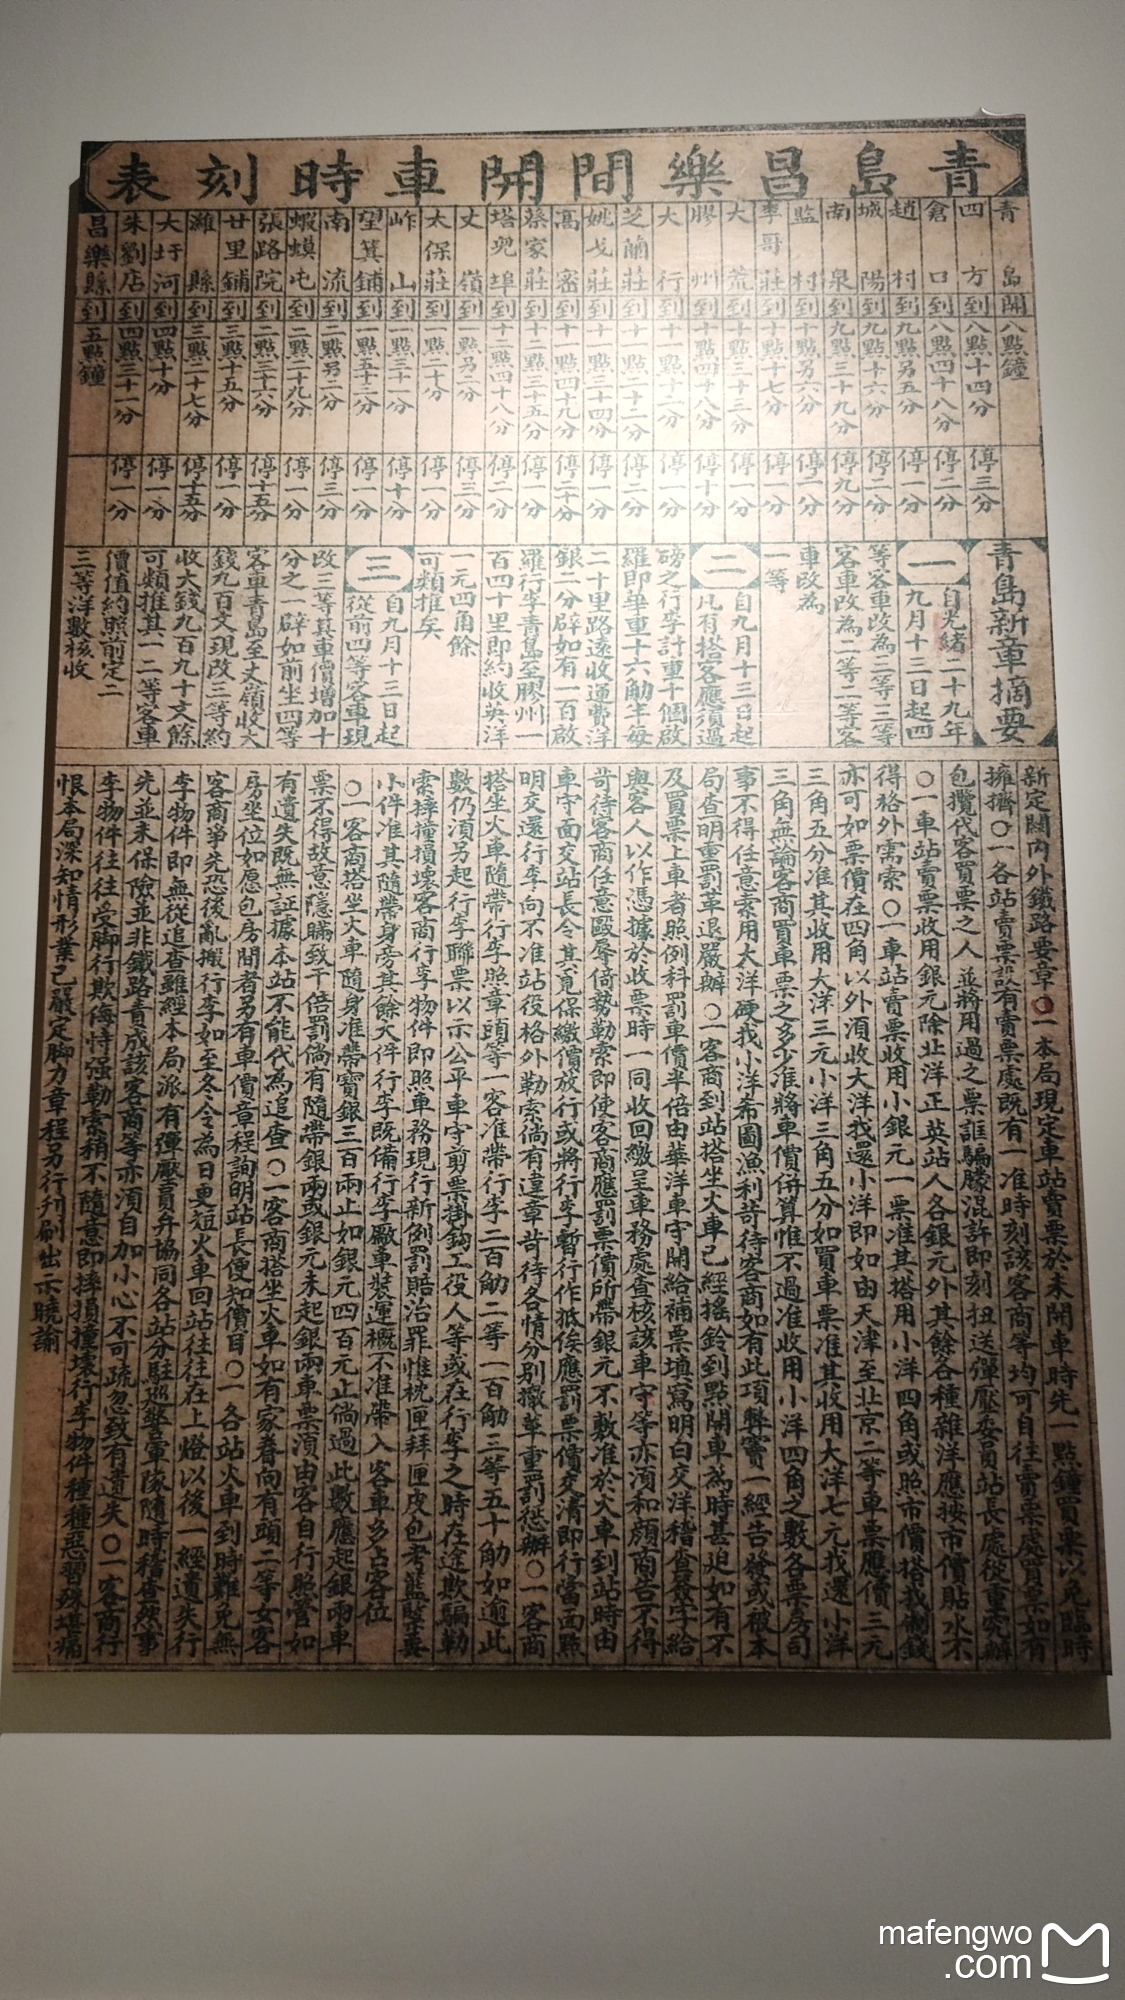 青島昌樂間開車時刻表
青島 開 八點鐘
四方 到 八點十四分 停三分
倉口 到 八點四十八分 停二分
趙村 到 九點另五分 停一分
城陽 到 九點十六分 停二分
南泉 到 九點三十九分 停九分
監村 到 十點另六分 停二分
李哥莊 到 十點十七分 停一分
大荒 到 十點三十三分 停一分
膠州 到 十點四十八分 停十分
大行 到 十一點十二分 停一分
芝蘭莊 到 十一點二十二分 停二分
姚戈莊 到 十一點三十四分 停一分
高密 到 十一點四十九分 停二十分
蔡家莊 到 十二點三十五分 停一分
塔兜埠 到 十二點四十八分 停一分
丈嶺 到 一點另二分 停三分
太保莊 到 一點二十分 停一分
岞山 到 一點三十一分 停十分
望箕鋪 到 一點五十二分 停一分
南流 到 二點另二分 停三分
蝦蟆屯 到 二點二十九分 停一分
張路院 到 二點三十六分 停十五分
廿里鋪 到 三點十五分 停一分
濰縣 到 三點二十七分 停十五分
大圩河 到 四點十分 停一分
朱劉店 到 四點三十一分 停一分
昌樂縣 到 五點鐘
青島新章摘要
一 自光緒二十九年
九月十三日起四
等客車改為三等三等
客車改為二等二等客
車改為
一等
二 自九月十三日起
凡有搭客應須過
磅之行李計重十個啟
羅即華車十六觔半每
二十里路遠收運費洋
銀二分辟如有一百啟
羅行李青島至膠州一
百四十里即約收英洋
一元四角餘
可類推矣
三 自九月十三日起
從前四等客車現
改三等其車價增加十
分之一辟如前坐四等
客車青島至丈嶺收大
錢九百文現改三等約
收大錢九百九十文餘
可類推其一二等客車
價值約照前定二
三等洋數核收
新定關內外鐵路要章○一本局現定車站賣票於未開車時先一點鐘買票以免臨時
擁擠○一各站賣票設有賣票處既有一准時刻該客商等均可自往賣票處買票如有
包攬代客買票之人並將用過之票誆騙朦混許即刻扭送彈壓委員站長處從重究辦
○一車站賣票收用銀元除北洋正英站人各銀元外其餘各種雜洋應按市價貼水不
得格外需索○一車站賣票收用小銀元一票准其搭用小洋四角或照市價搭找制錢
亦可如票價在四角以外須收大洋找還小洋即如由天津至北京二等車票應價三元
三角五分准其收用大洋三元小洋三角五分如買車票准其收用大洋七元找還小洋
三角無論客商買車票之多少准將車價併算惟不過准收用小洋四角之數各票房司
事不得任意索用大洋硬找小洋希圖漁利苛待客商如有此項弊竇一經告發或被本
局查明重罰革退嚴辦○一客商到站搭坐火車已經搖鈴到點開車為時甚迫如有不
及買票上車者照例科罰車價半倍由華洋車守開給補票填寫明白交洋稽查簽字給
與客人以作憑據於收票時一同收回繳呈車務處查核該車守等亦須和顏商告不得
苛待客商任意毆辱倚勢勒索即使客商應罰票價所帶銀元不敷准於火車到站時由
車守面交站長令其覓保繳價放行或將行李暫行作抵俟應罰票價交清即行當面點
明交還行李向不准站役格外勒索倘有違章苛待各情分別撤革重罰懲辦○一客商
搭坐火車隨帶行李照章頭等一客准帶行李二百觔二等一百觔三等五十觔如逾此
數仍須另起行李聯票以示公平車守剪票掛鈎工役人等或在行李之時在途欺騙勒
索摔撞損壞客商行李物件即照車務現行新例罰賠治罪惟枕匣拜匣皮包考籃壓裝
小件准其隨帶身旁其餘大件行李既備行李廠車裝運概不准帶入客車多占客位
○一客商搭坐火車隨身准帶寶銀三百兩止如銀元四百元止倘過此數應起銀兩車
票不得故意隱瞞致干倍罰倘有隨帶銀兩或銀元未起銀兩車票須由客自行照管如
有遺失既無証據本站不能代為追查○一客商搭坐火車如有家眷向有頭二等女客
房坐位如愿包房間者另有車價章程詢明站長便知價目○一各站火車到時難免無
客商爭先恐後亂搬行李如至冬令為日更短火車回站往往在上燈以後一經遺失行
李物件即無從追查雖經本局派有彈壓員弁協同各站分駐巡警軍隊隨時稽查殊事
先並未保險並非鐵路責成該客商等亦須自加小心不可疏忽致有遺失○一客商行
李物件往往受脚行欺侮恃强勒索稍不隨意即摔損撞壞行李物件種種惡習殊堪痛
恨本局深知情形業已嚴定脚力章程另行刋刷出示曉諭
mafengwo
.com